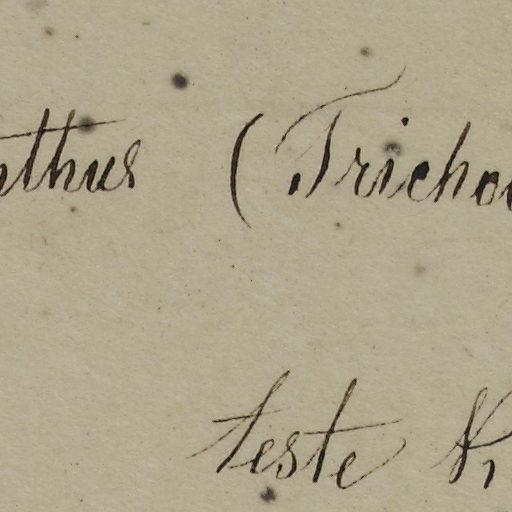 nthus (Tricho
teste K